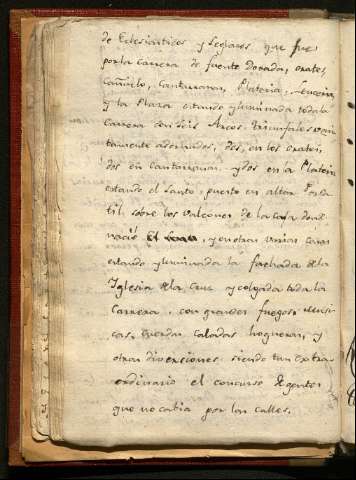 de Eclesiasticos y Seglares, que fue
por la Carrera de fuente Dorada, orates,
Cañuelo, Cantarranas, Plateria, Lenceria
y la Plaza estando yluminada toda la
Carrera con seis Arcos triunfales
tamente adornados, dos, en los orates,
dos en Cantarranas, y dos en la Plateria
estando el Santo, puesto en altar
til, sobre los valcones de la casa don
nació, y en otras varias casas
estando yluminada la fachada de la
Iglesia de la Cruz y colgada toda la
Carrera, con grandes fuegos, musi
cas, cuerdas caladas hogueras, y
otras diversiones: siendo tan extra
ordinario el concurso de gentes
que no cabia por las calles.